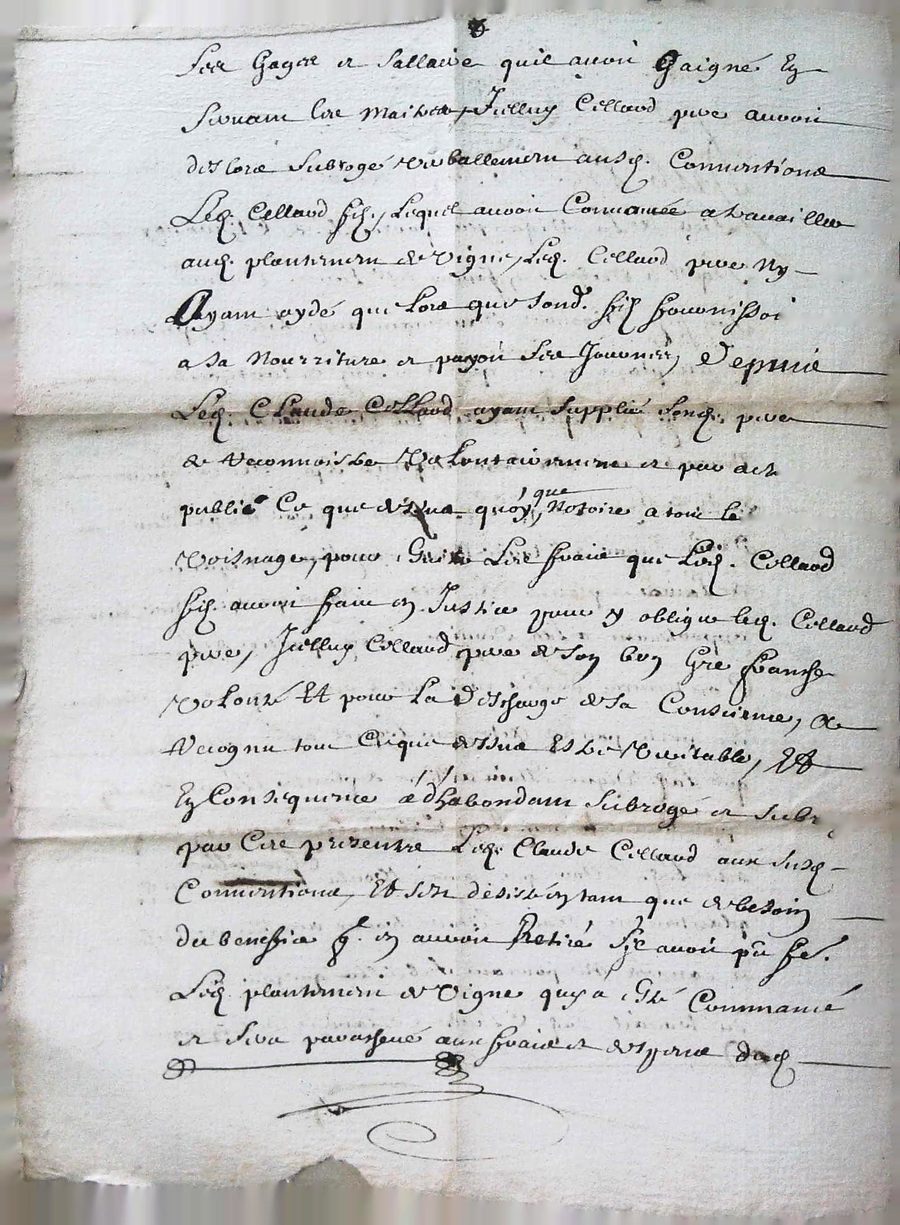 ses Gages et sallaire quil avoit Gaigné En
servant les maitres, Jcelluy Cellard pere auroit
dezlors subrogé verballement ausd. Conventions
Led. Cellard fils, Lequel auroit Commancé a travailler
aud. plantement de vigne, Led. Cellard pere Ny
Ayant aydé que Lors que sond. fils fournissoit
a sa Nourriture et payoit ses Journées, Depuis
Led. Claude Cellard ayant supplié sond. pere
de reconnoistre Volontairement et par acte
public Ce que dessus quoy que Notoire a tout le
Voisinage, pour Eviter Les fraix que Led. Cellard
fils auroit fait en Justice pour y obliger led. Cellard
pere, Jcelluy Cellard pere de son bon Gré franche
Volonté Et pour La descharge de sa Conscience, a
recognu tout Ce que dessus Estre Veritable, Et
En Consequence a d'habondant subrogé et subr.
par Ces presentes Led. Claude Cellard aux susd.
Conventions, Et s'en desiste en tant que de besoin
du benefice q. en auroit Retiré s'il avoit pû fe.
Led. plantement de Vigne quy a Esté Commancé
et sera parachevé aux fraix et despens dud.